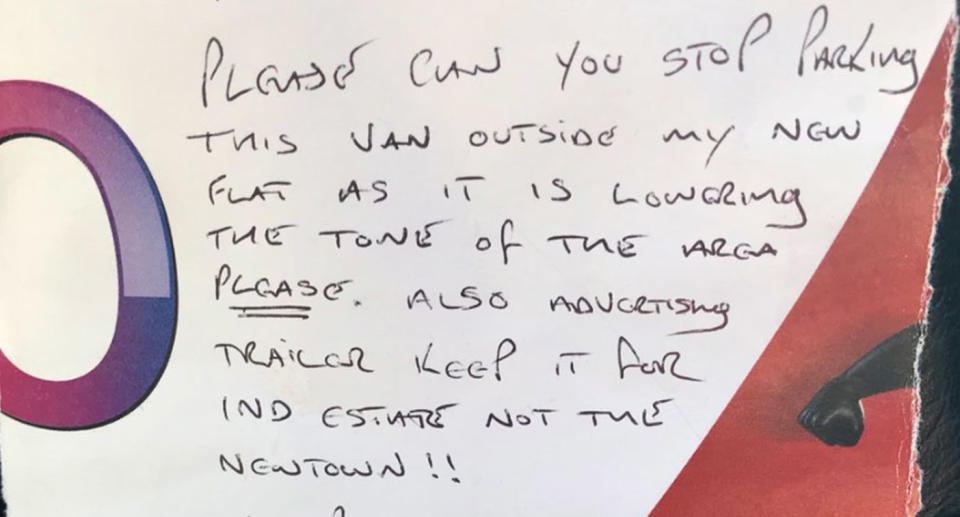 PLEASE CAN YOU STOP PARKING
THIS VAN OUTSIDE MY NEW
FLAT AS IT IS LOWERING
THE TONE OF THE AREA
PLEASE. ALSO ADVERTISING
TRAILER KEEP IT FOR
IND ESTATE NOT THE
NEWTOWN!!